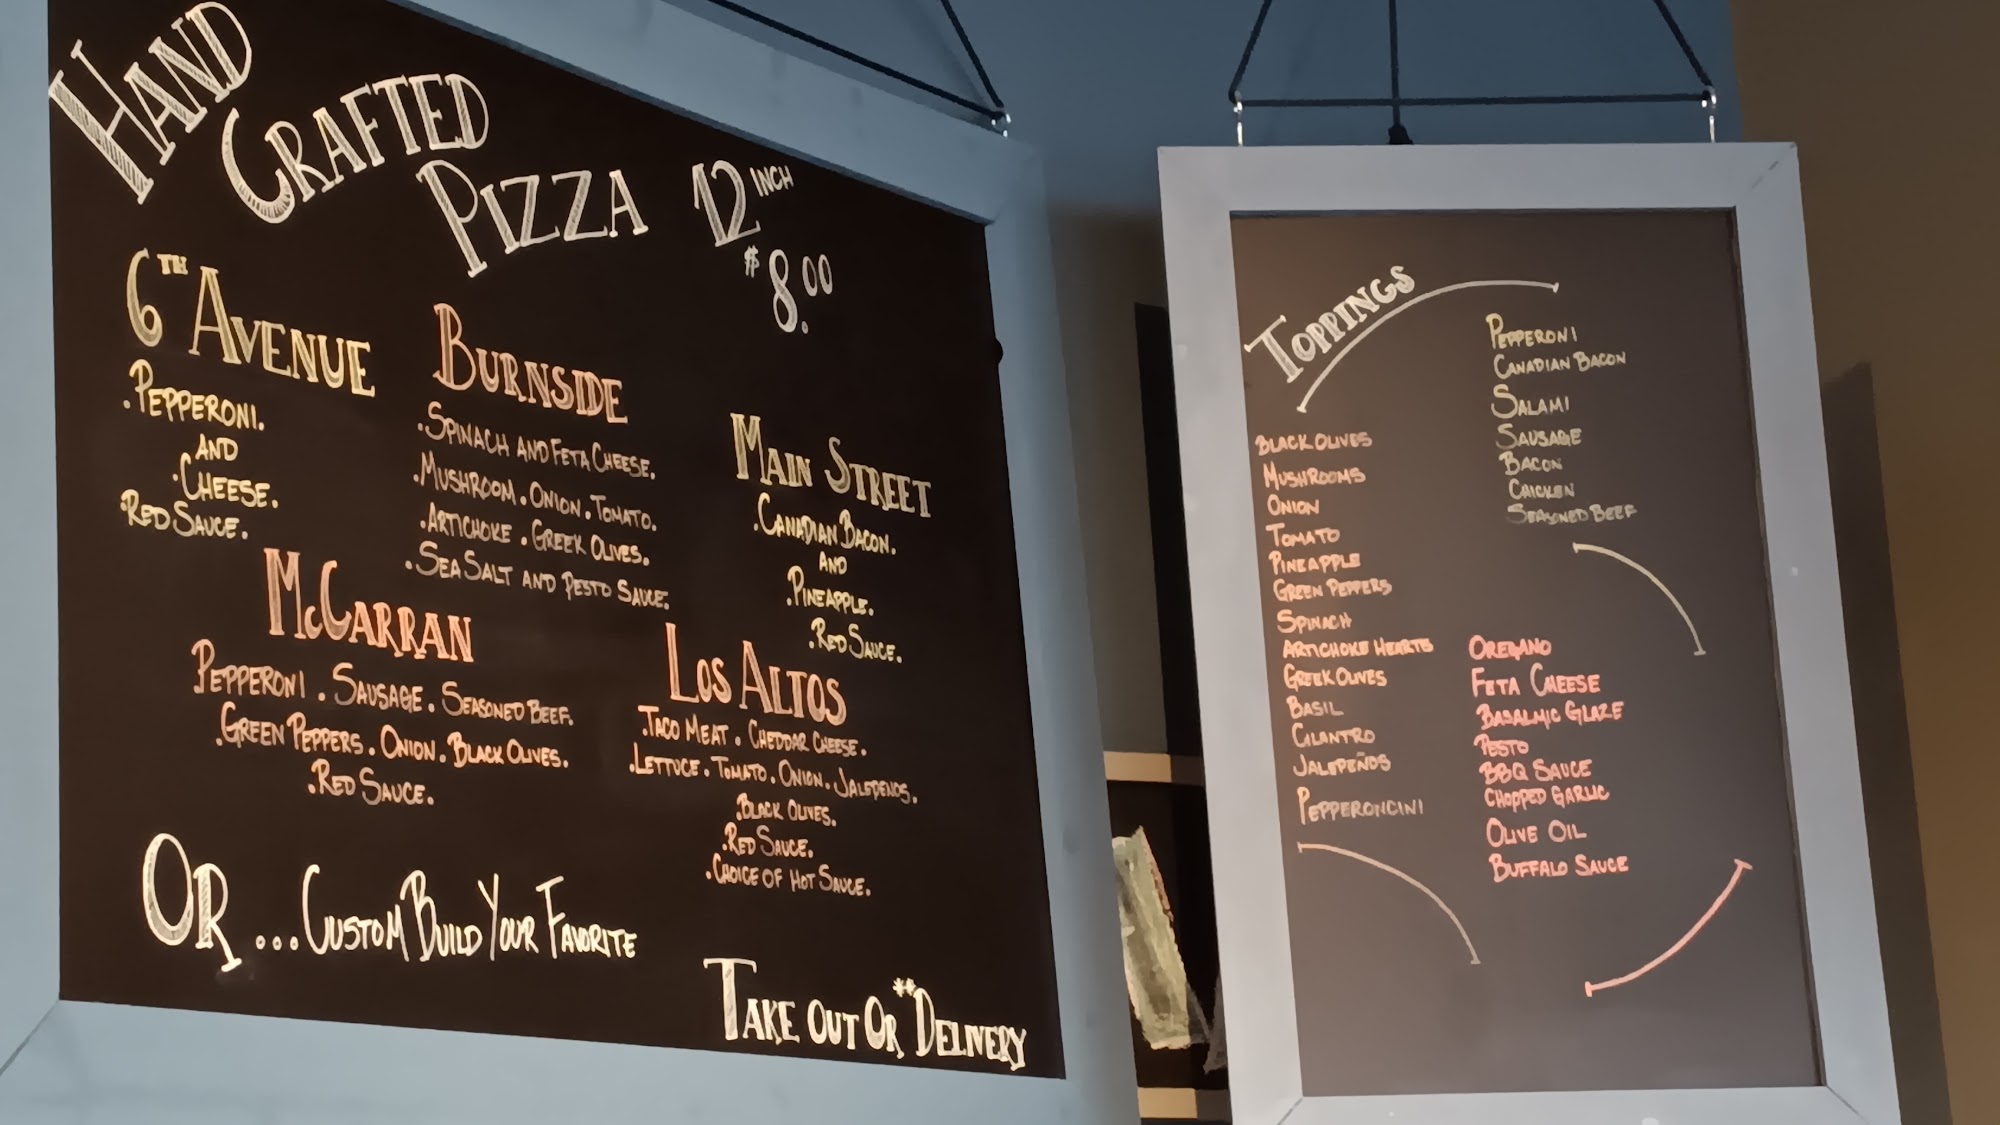 HAND
CRAFTED
PIZZA
12 INCH
$8.00
6TH AVENUE
.PEPPERONI.
AND
.CHEESE.
.RED SAUCE.
BURNSIDE
.SPINACH AND FETA CHEESE.
.MUSHROOM.ONION.TOMATO.
.ARTICHOKE.GREEK OLIVES.
.SEA SALT AND PESTO SAUCE.
MAIN STREET
.CANADIAN BACON.
AND
.PINEAPPLE.
.RED SAUCE.
MCCARRAN
PEPPERONI.SAUSAGE.SEASONED BEEF.
.GREEN PEPPERS.ONION.BLACK OLIVES.
.RED SAUCE.
LOS ALTOS
.TACO MEAT.CHEDDAR CHEESE.
.LETTUCE.TOMATO.ONION.JALEPENOS.
.BLACK OLIVES.
.RED SAUCE.
.CHOICE OF HOT SAUCE.
OR ...CUSTOM BUILD YOUR FAVORITE
TAKE OUT OR **DELIVERY
TOPPINGS
BLACK OLIVES
MUSHROOMS
ONION
TOMATO
PINEAPPLE
GREEN PEPPERS
SPINACH
ARTICHOKE HEARTS
GREEK OLIVES
BASIL
CILANTRO
JALEPEÑOS
PEPPERONCINI
PEPPERONI
CANADIAN BACON
SALAMI
SAUSAGE
BACON
CHICKEN
SEASONED BEEF
OREGANO
FETA CHEESE
BASALMIC GLAZE
PESTO
BBQ SAUCE
CHOPPED GARLIC
OLIVE OIL
BUFFALO SAUCE